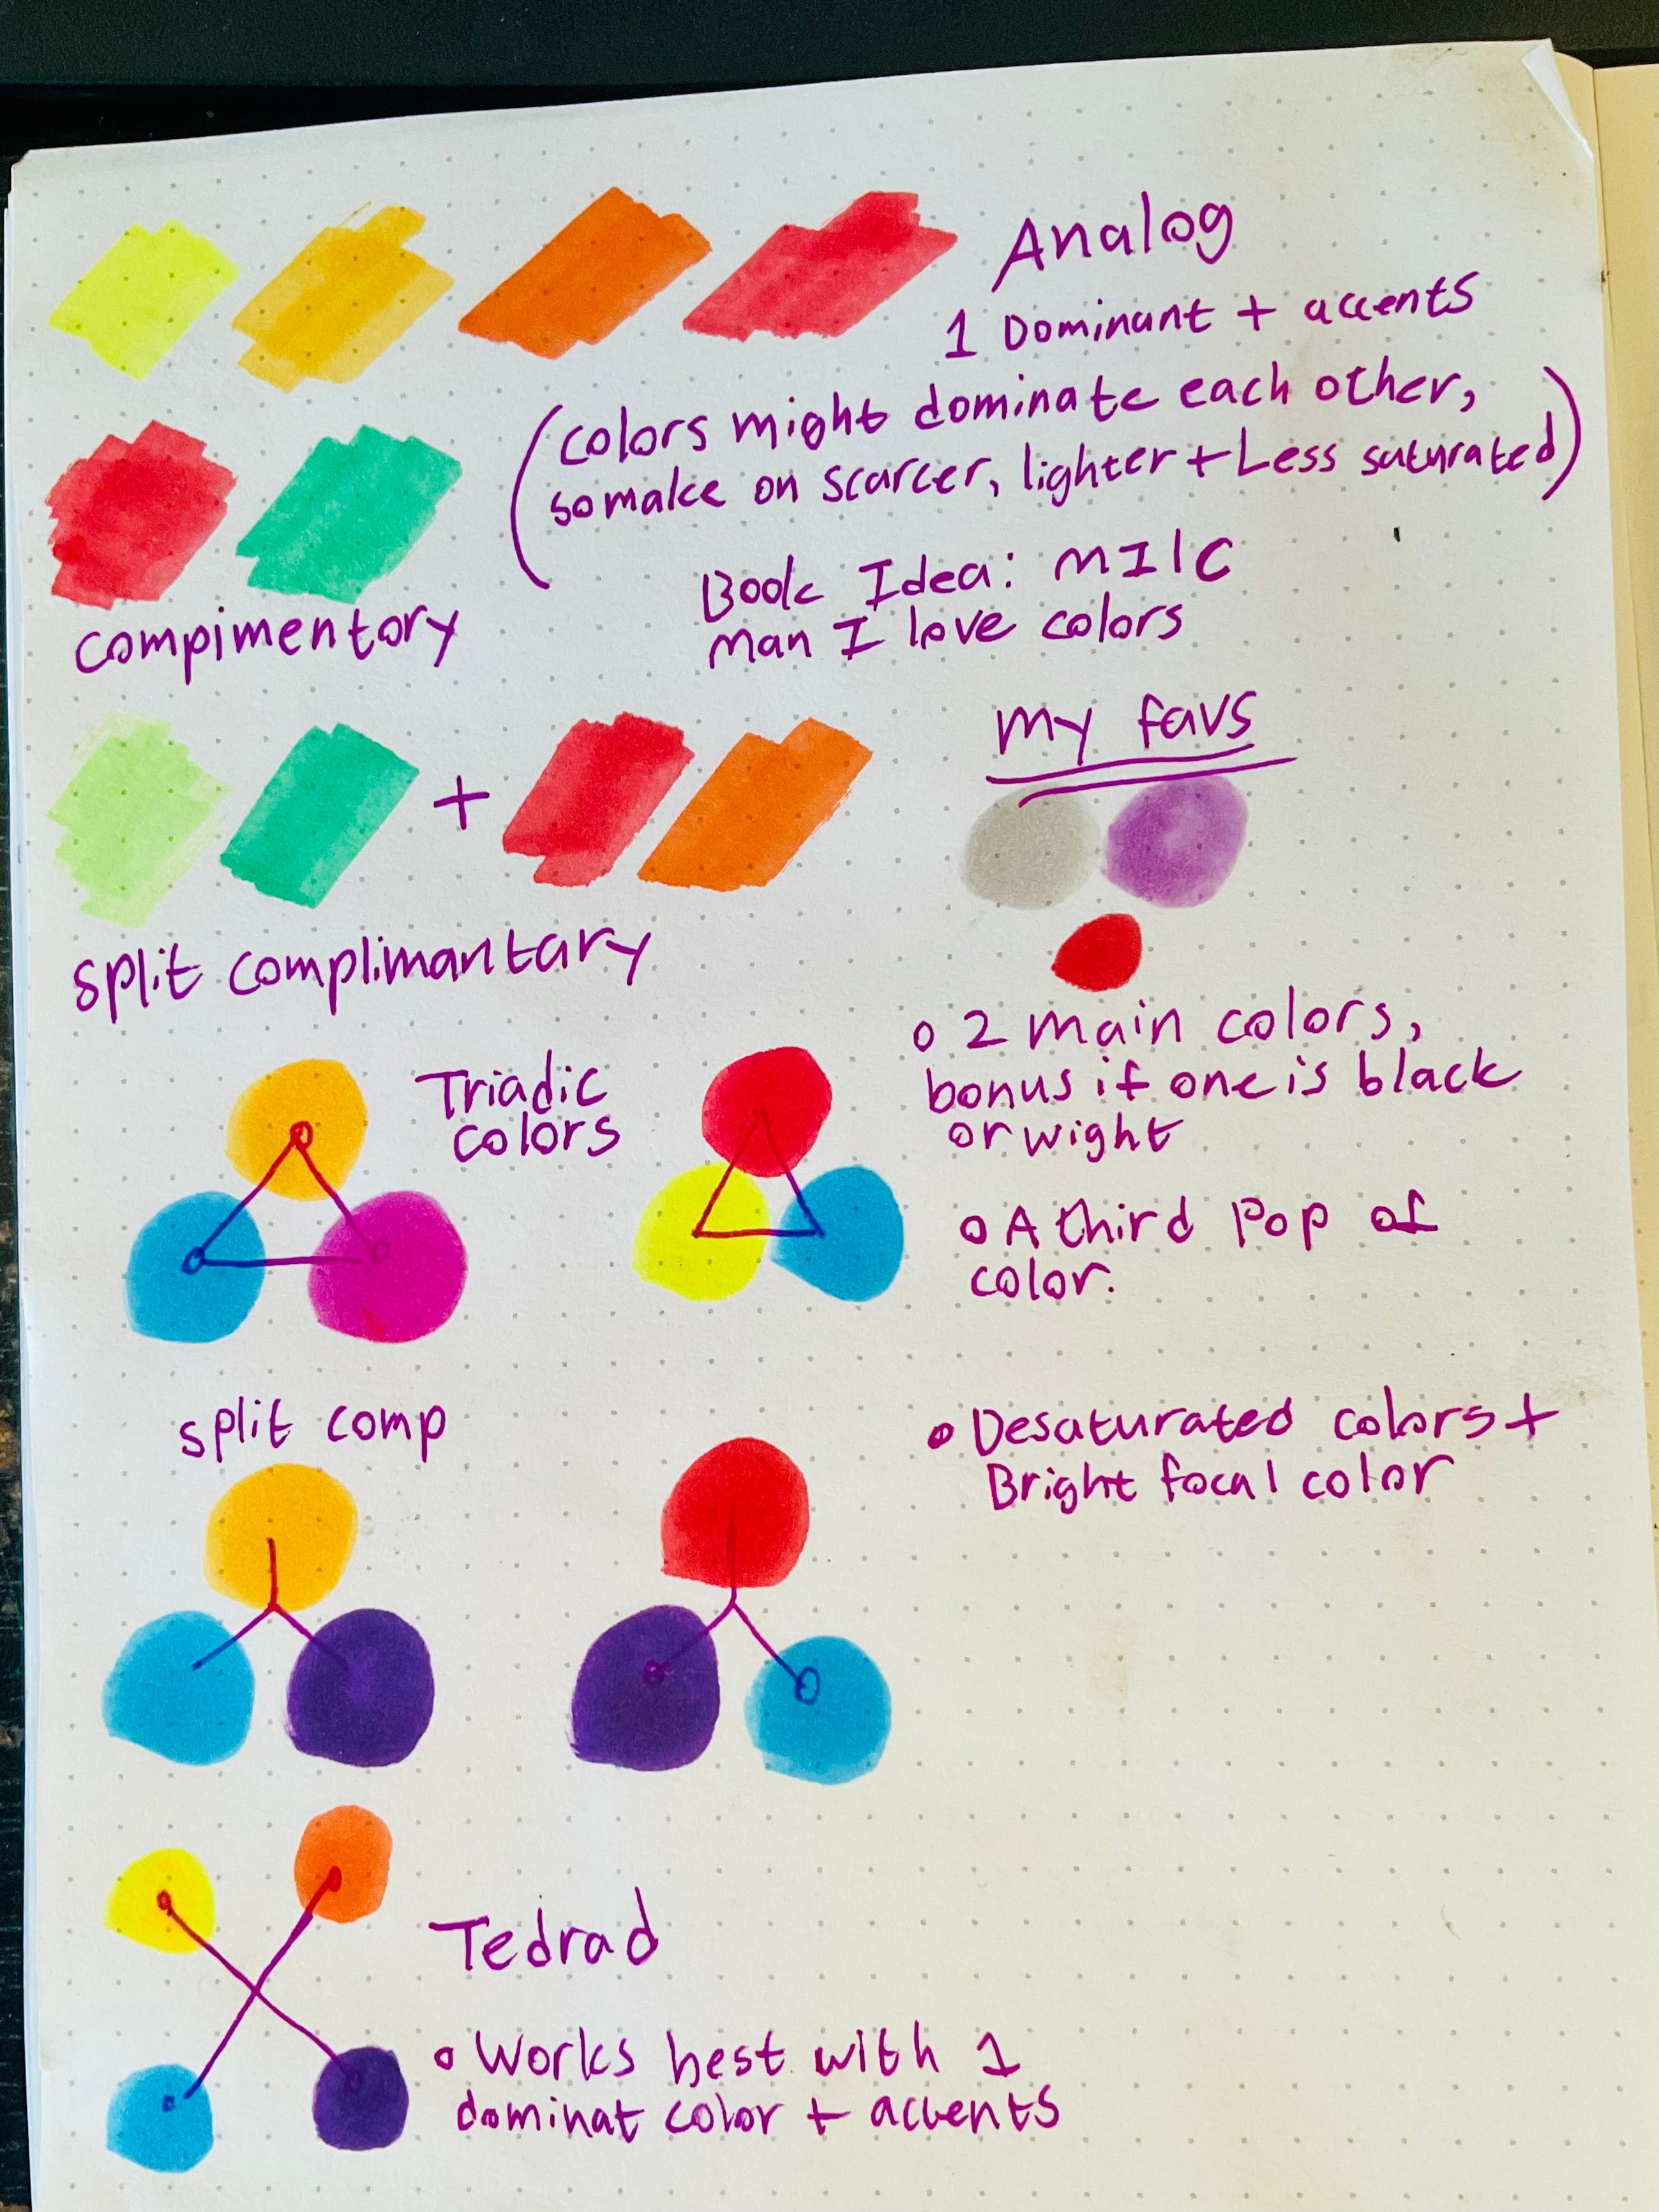 Analog
1 Dominant + accents
(colors might dominate each other,
so make on scarcer, lighter + Less saturated)
compimentory
Book Idea: MIlC
man I love colors
my favs
+
split complimantary
Triadic
colors
o 2 main colors,
bonus if one is black
or wight
o A third Pop of
color.
split comp
o Desaturated colors +
Bright focal color
Tedrad
o Works best with 1
dominat color + accents